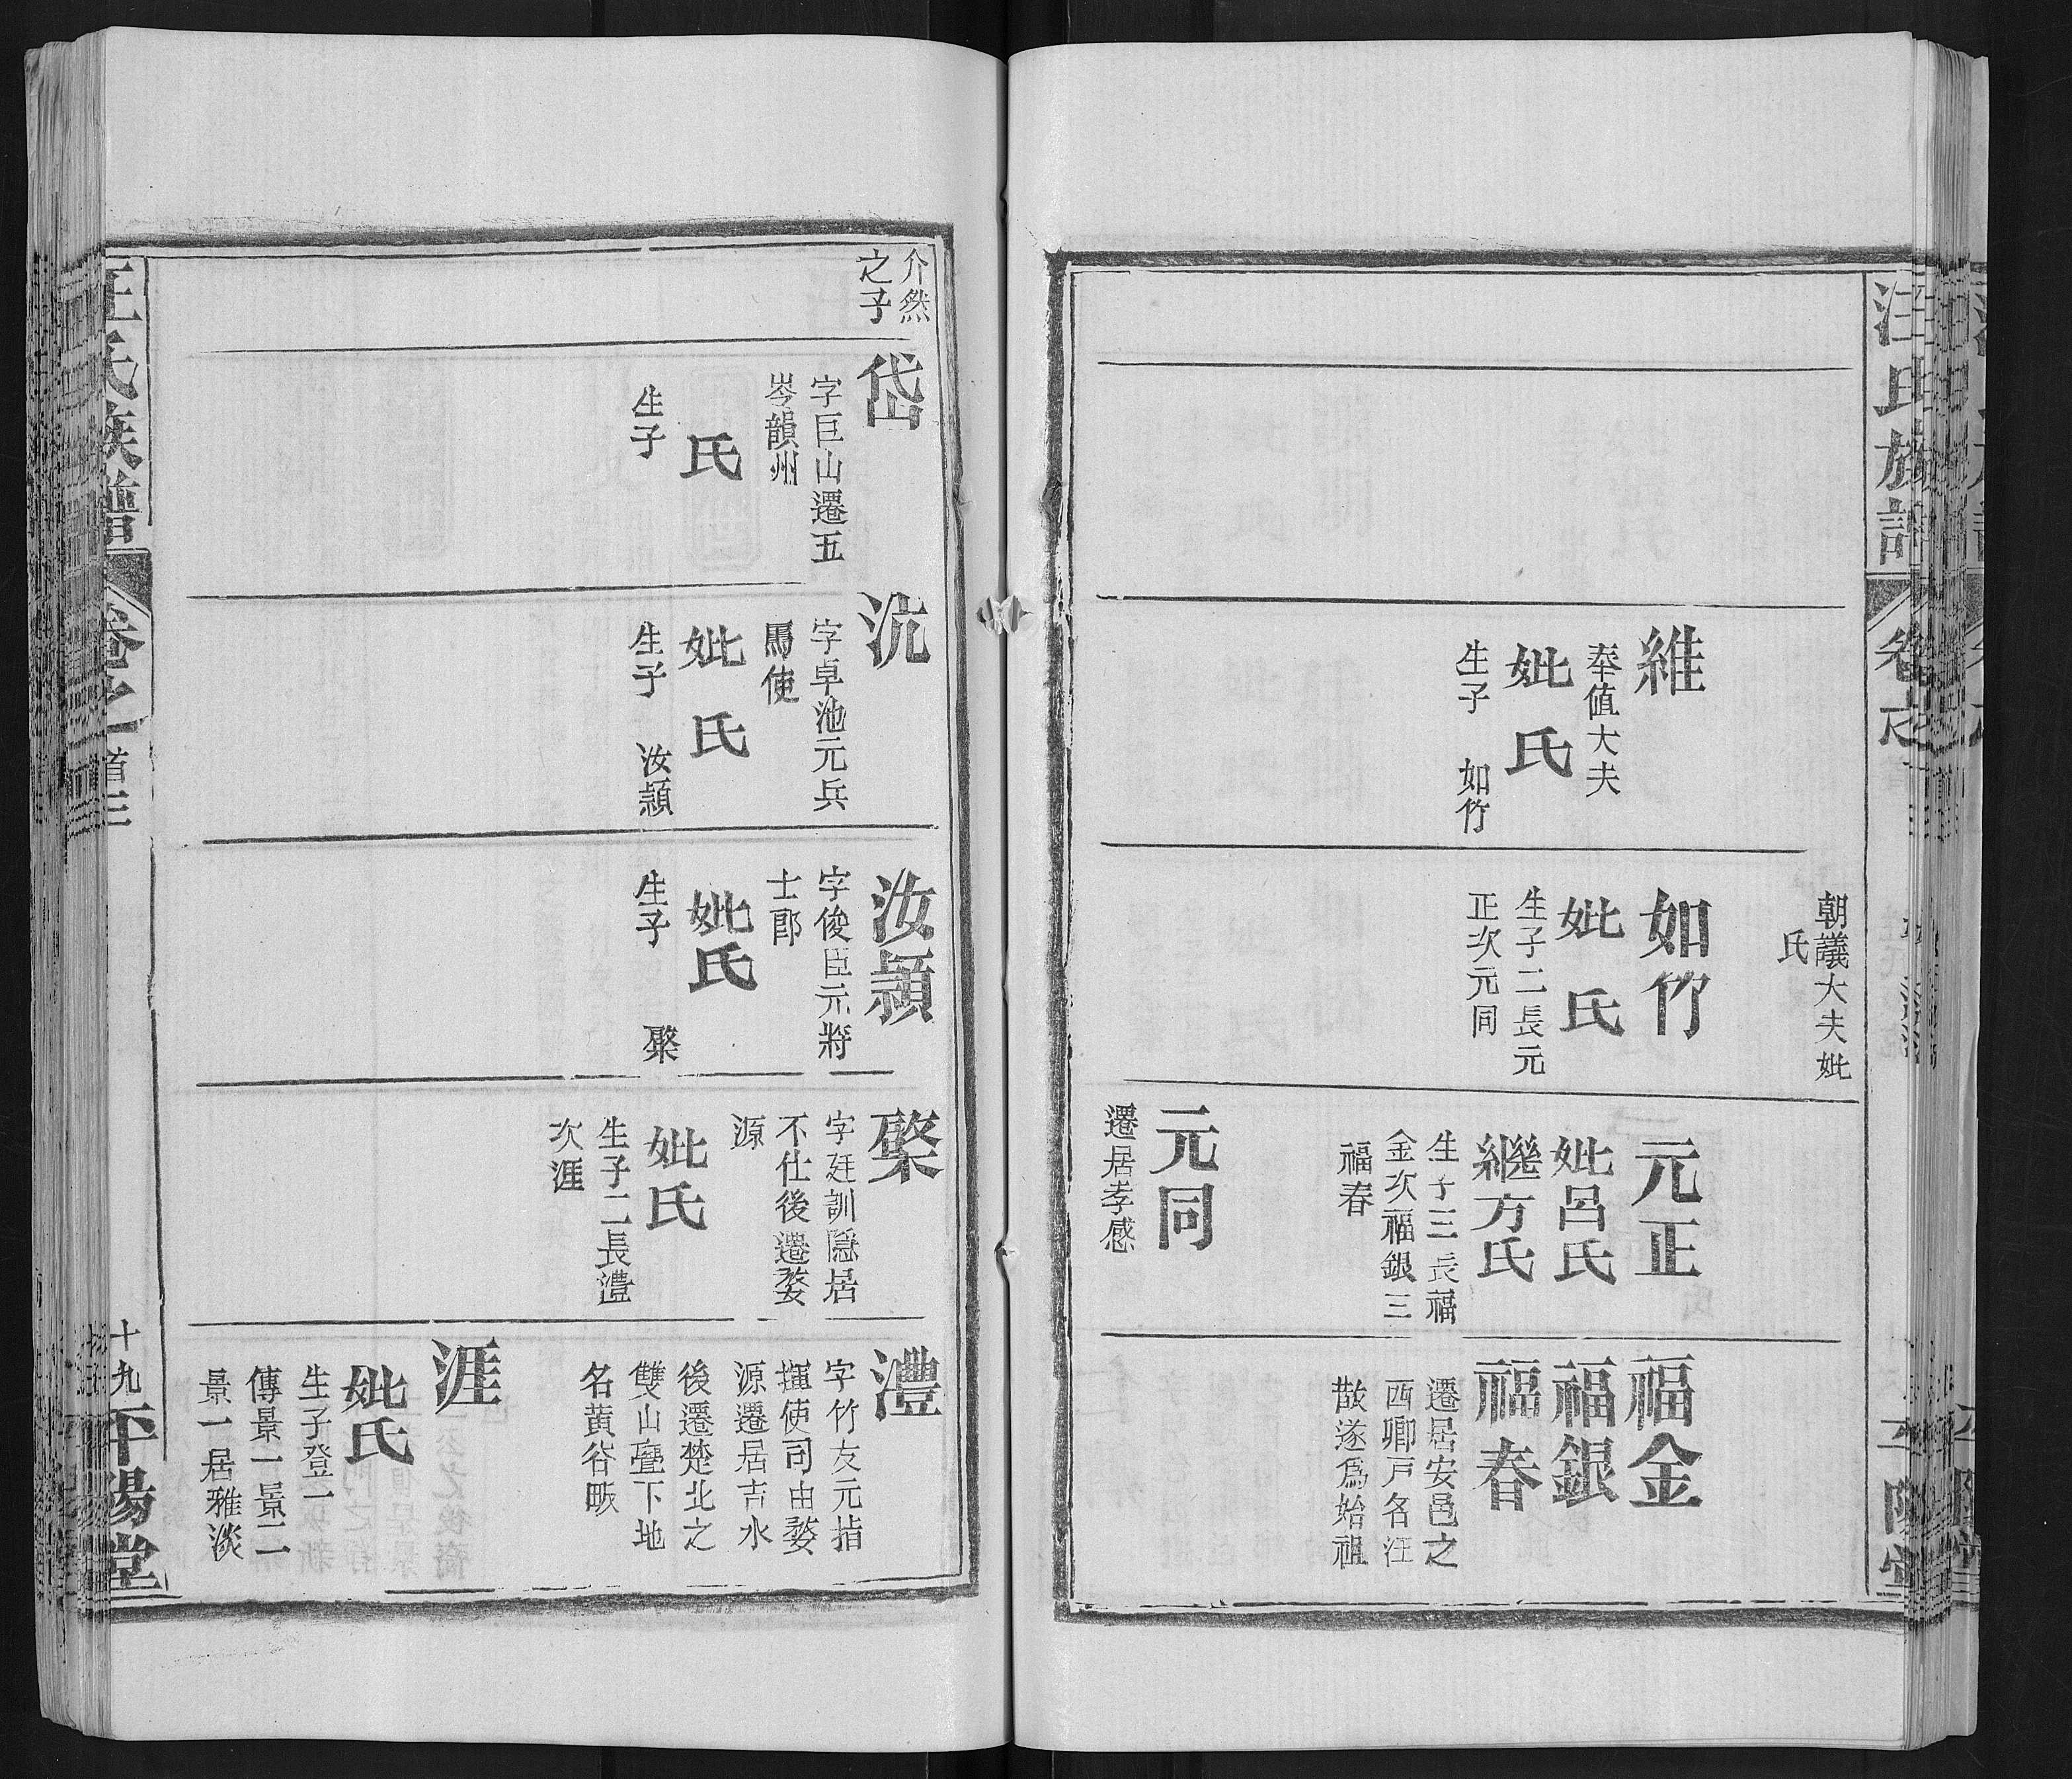 汪氏族譜
朝議大夫妣
氏
維
奉值大夫
妣氏
生子 如竹
如竹
妣氏
生子二長元
正次元同
元正
妣呂氏
繼方氏
生子三長福
金次福銀三
福春
元同
遷居孝感
福金
福銀
福春
遷居安邑之
西鄉戸名汪
散遂爲始祖
介然
之子
岱
字巨山遷五
岑韻州
氏
生子
沆
字卓池元兵
馬使
妣氏
生子 汝頴
汝頴
字俊臣元將
士郎
妣氏
生子 檠
檠
字廷訓隱居
不仕後遷婺
源
妣氏
生子二長澧
次涯
澧
字竹友元指
揮使司由婺
源遷居吉水
後遷楚北之
雙山疊下地
名黃谷畈
涯
妣氏
生子登一
傳景一景二
景一居雅淡
汪氏族譜
卷之首三
十九
平陽堂